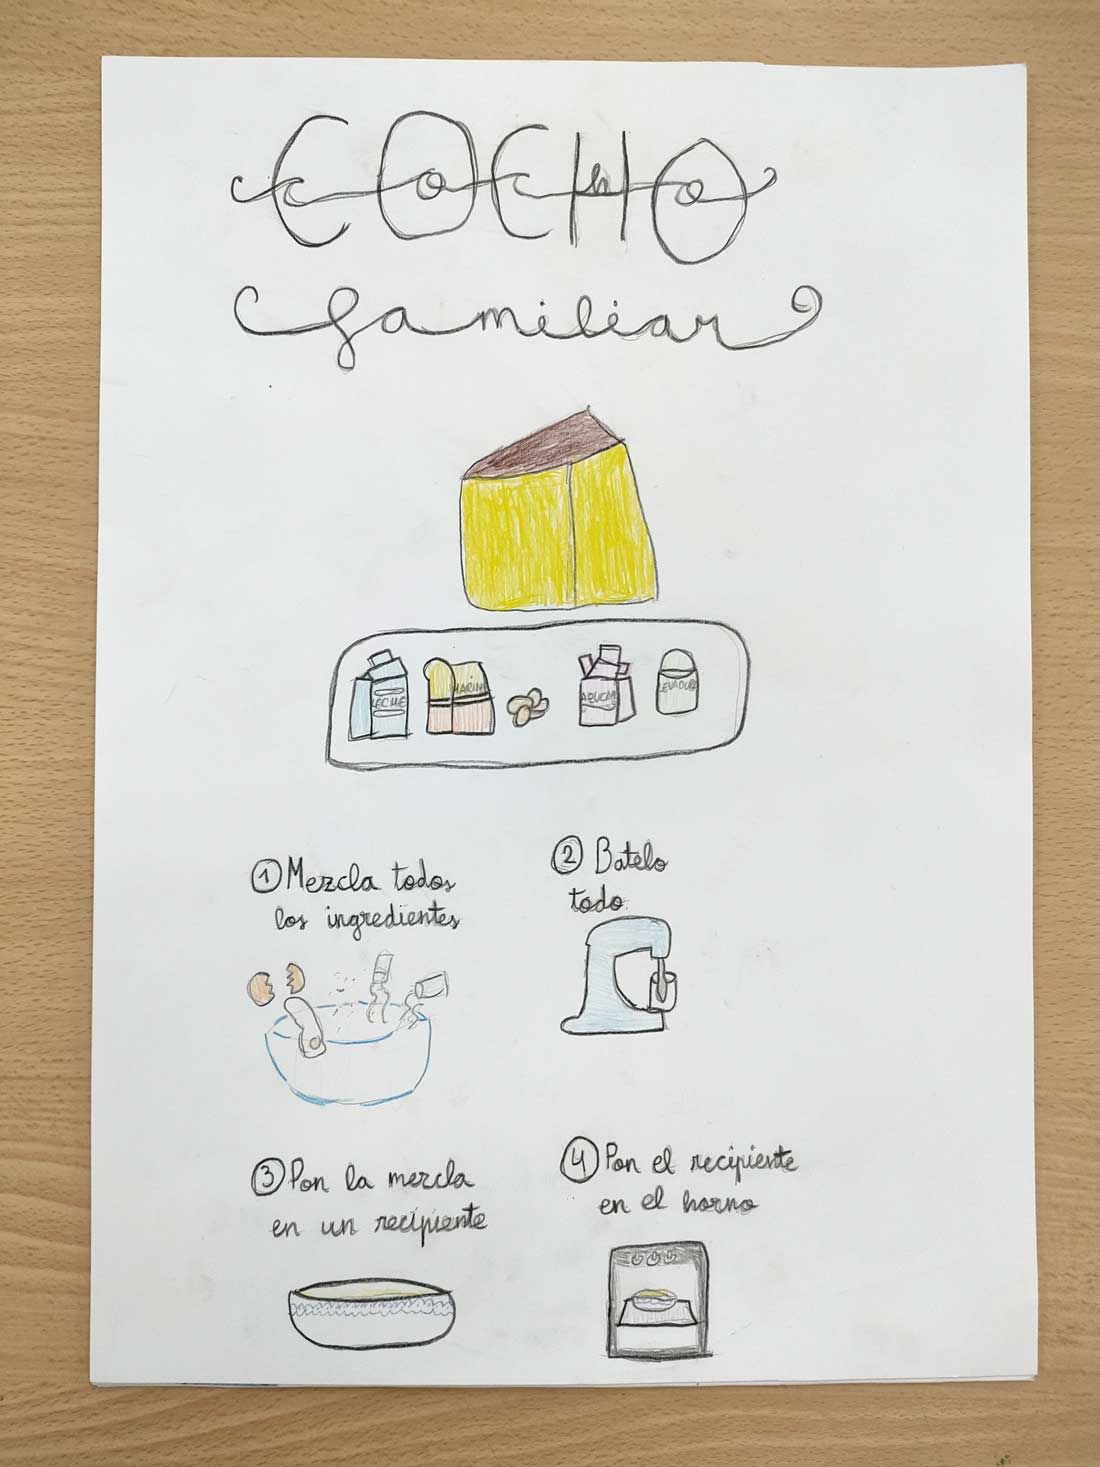 COCHO
familiar
LECHE
HARINA
AZUCAR
LEVADURA
1 Mezcla todos
los ingredientes
2 Batelo
todo
3 Pon la mezcla
en un recipiente
4 Pon el recipiente
en el horno